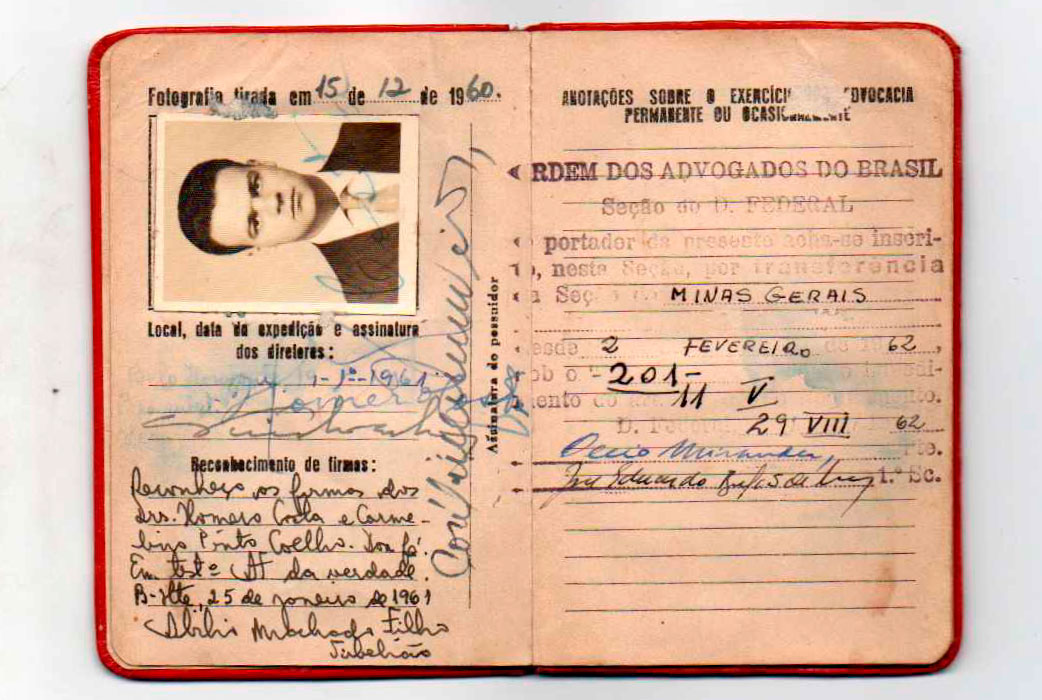 Fotografia tirada em 15 de 12 de 1960.
Local, data da expedição e assinatura
dos diretores:
1-1º-1961
Reconhecimento de firmas:
Reconheço as firmas dos
Drs. Homero Costa e Carme-
Pinto Coelho. Dou fé.
Em testº da verdade.
B-Hte, 25 de janeiro de 1961
Abilio Machado Filho
Tabelião
Assinatura do possuidor
ANOTAÇÕES SOBRE O EXERCÍCI ADVOCACIA
PERMANENTE OU OCASIONALMENTE
RDEM DOS ADVOGADOS DO BRASIL
Seção do D. FEDERAL
o portador da presente acha-se inscri-
o, nesta Seção, por transferência
a Seção MINAS GERAIS
esde 2 FEVEREIRO de 1962,
ob o -201-
11 V
mento
D. Federal 29 VIII 62
te.
José Eduardo 1.º Sc.